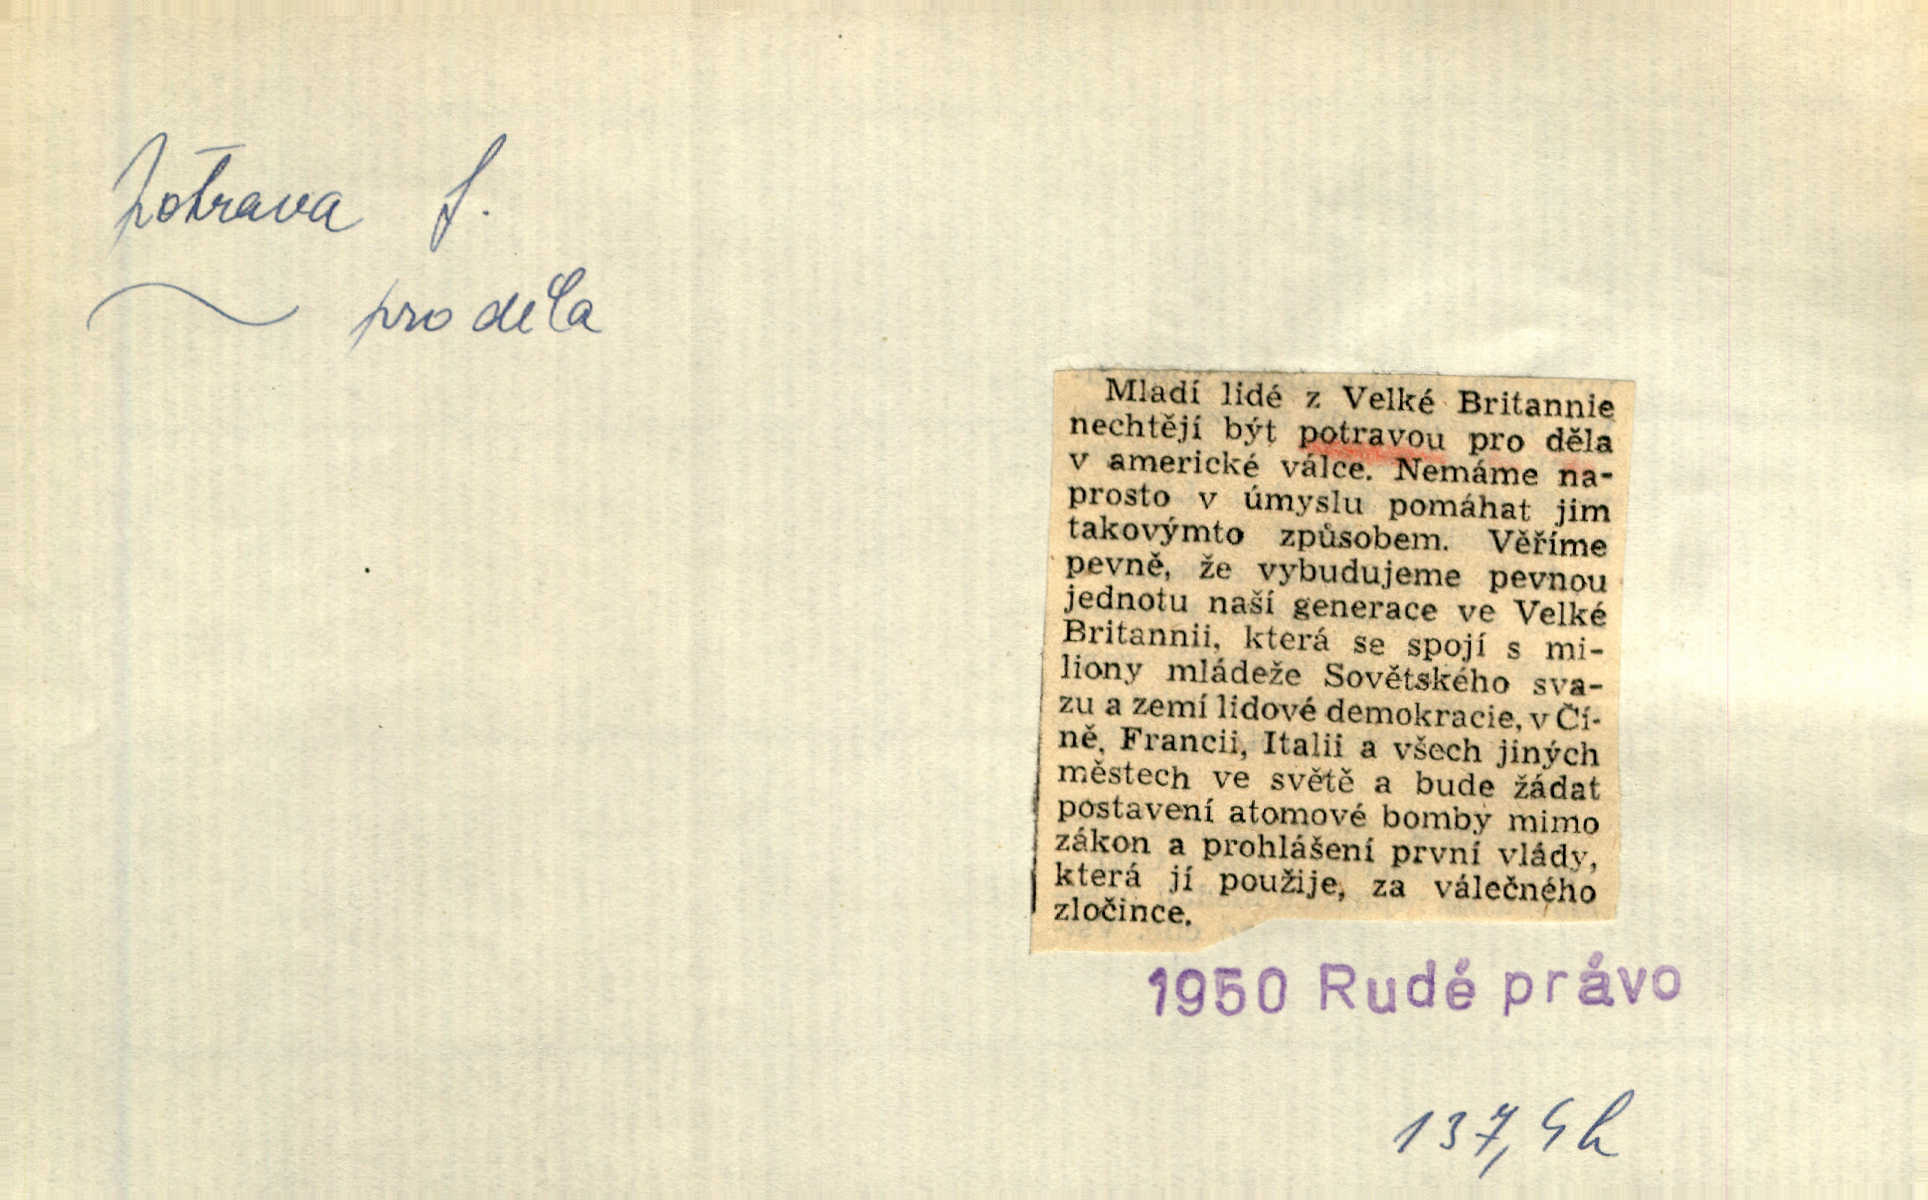 potrava f.
~ pro děla
Mladí lidé z Velké Britannie
nechtějí být potravou pro děla
v americké válce. Nemáme na-
prosto v úmyslu pomáhat jim
takovýmto způsobem. Věříme
pevně, že vybudujeme pevnou
jednotu naší generace ve Velké
Britannii, která se spojí s mi-
liony mládeže Sovětského sva-
zu a zemí lidové demokracie, v Čí-
ně, Francii, Italii a všech jiných
městech ve světě a bude žádat
postavení atomové bomby mimo
zákon a prohlášení první vlády,
která jí použije, za válečného
zločince.
1950 Rudé právo
137,4h